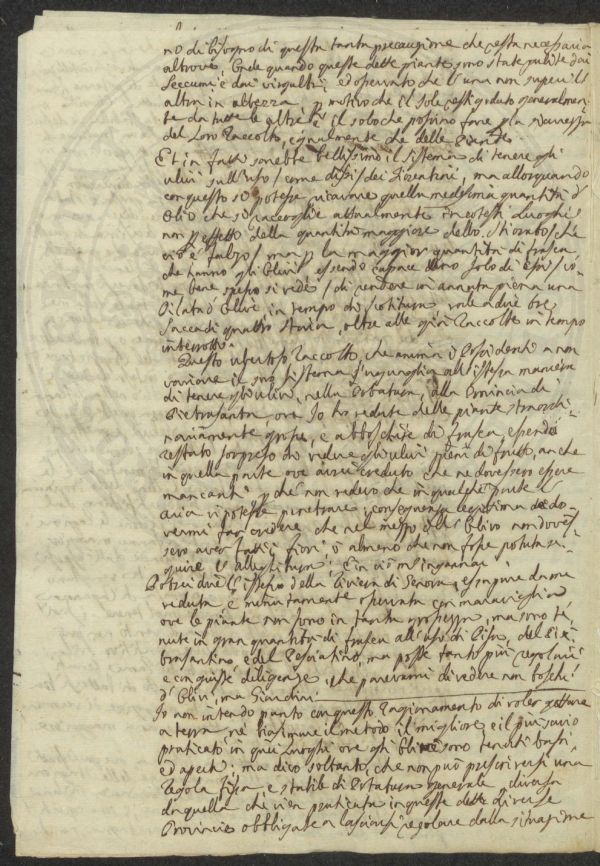 no di bisogno di questa tanta precauzione che resta necessaria
altrove. Onde quando queste dette piante sono state pulite dai
Seccumi e dai virgulti, ed osservato che l'una non superi l'
altra in altezza, p motivo che il sole resti goduto generalmen-
te da tutte le altre è il solo che possino fare p la sicurezza
del Loro raccolto, egualmente che delle Piante
Et in fatti sarebbe bellissimo il sistema di tenere gli
ulivi sull'uso / come dissi / dei Fiorentini, ma allorquando
con questo si potesse ricavare quella medesima quantità d'
Olio che si raccoglie attualmente in cotesti Luoghi
non p effetto della quantità maggiore dello / che
ciò è falso / ma p la maggior quantità di frasca,
che hanno gli Ulivi essendo capace uno solo di essi / co-
me bene spesso si vede / di rendere in annata piena una
Pilata d'Olive in tempo di vale a dire tre
Sacca di quattro staria, oltre alle già raccolte in tempo
interrotto.
Questo ubertoso raccolto, che anima i Possidenti a non
variare il suo sistema s'uguaglia all'istessa maniera
di tenere gli ulivi, nella Potatura, alla Provincia di
Pietrasanta, ove Io ho vedute delle piante straordi-
nariamente grosse, e di frasca, essendo
restato sorpreso di vedere gli ulivi pieni di frutto, anche
in quella parte ove avrei creduto che ne dovessero essere
mancanti, p che non vedevo che in qualche parte l'
aria vi potesse penetrare p conseguenza legittima do-
vermi far credere che nel mezzo dell'Ulivo non doves-
sero aver fatti i fiori ò almeno che non fosse potuta se-
guire l' Et in ciò m'ingannai
Potrei dire l'istesso della Riviera di Genova, essa pure da me
veduta, e minutamente osservata con maraviglia
ove le piante non sono in tanta grossezza, ma sono te-
nute in gran quantità di frasca all'uso di Pisa, del Pie-
trasantino, e del Pesciatino, ma poste tanto più regolari
e con giuste diligenze, che parevami di vedere non boschi
d'Ulivi, ma Giardini.
Io non intendo punto con questo ragionamento di voler gettare
a terra, ne biasimare il metodo il migliore, e il più savio
praticato in quei Luoghi ove gli Ulivi sono tenuti bassi
ed aperti; ma dico soltanto, che non può prescriversi una
regola fissa, e stabile di Potatura generale, diversa
da quella che vien praticata in queste dette diverse
Provincie obbligate a lasciarsi regolare dalla situazione